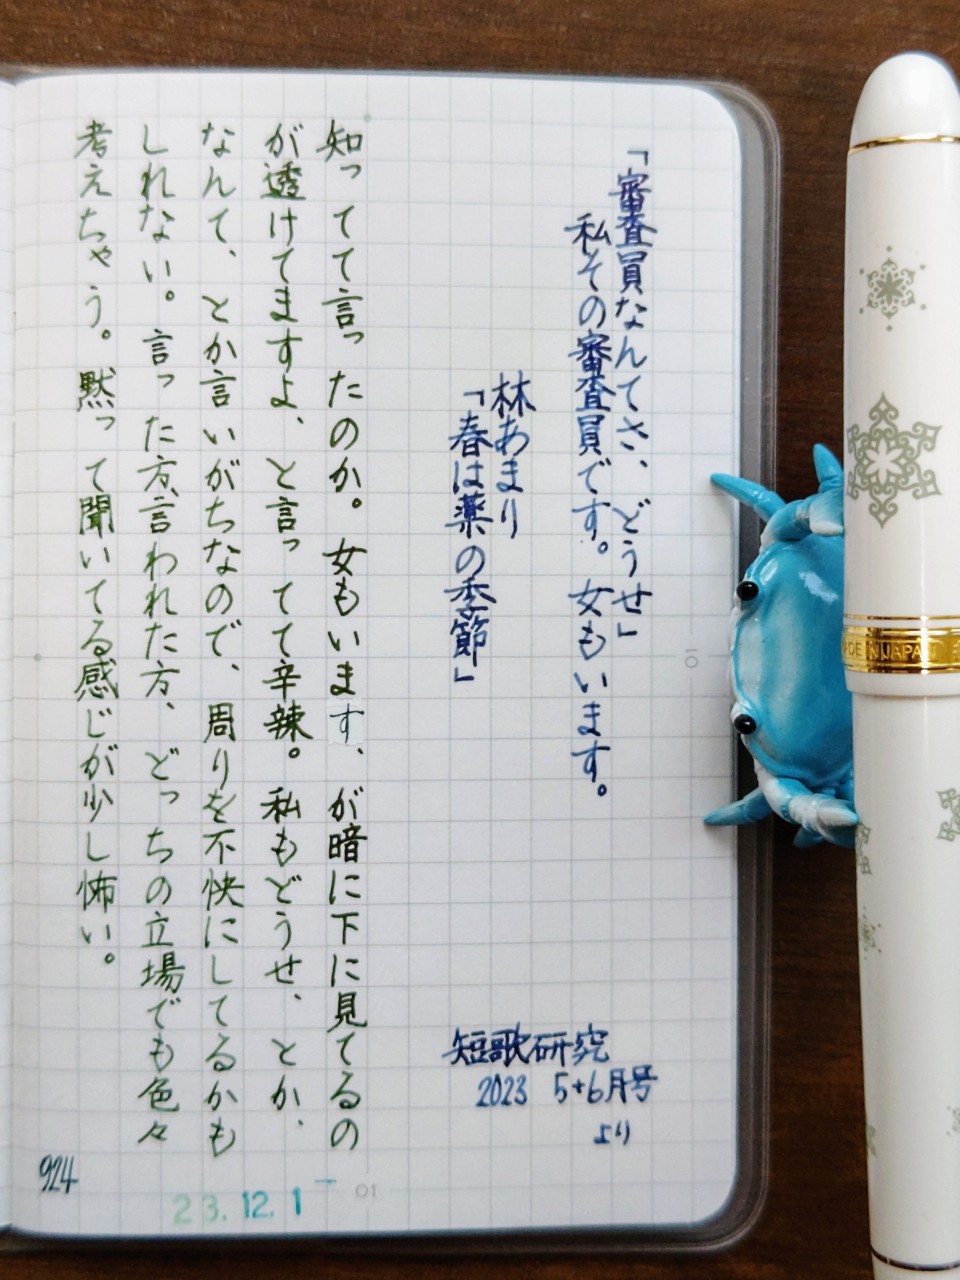 「審査員なんてさ、どうせ」
私その審査員です。女もいます。
林あまり
「春は薬の季節」
短歌研究
2023 5+6月号
より
知ってて言ったのか。女もいます、が暗に下に見てるの
が透けてますよ、と言ってて辛辣。私もどうせ、とか、
なんて、とか言いがちなので、周りを不快にしてるかも
しれない。言った方、言われた方、どっちの立場でも色々
考えちゃう。黙って聞いてる感じが少し怖い。
924
23.12.1
10
10
MADE IN JAPAN